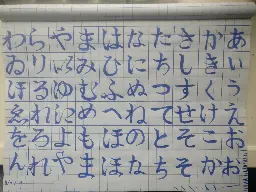 あいうえおお
かきくけこか
さしすせそそ
たちつてとち
なにぬねのな
はひふへほほ
まみむめもま
やゆよや
らりるれろれ
わゐゑをん